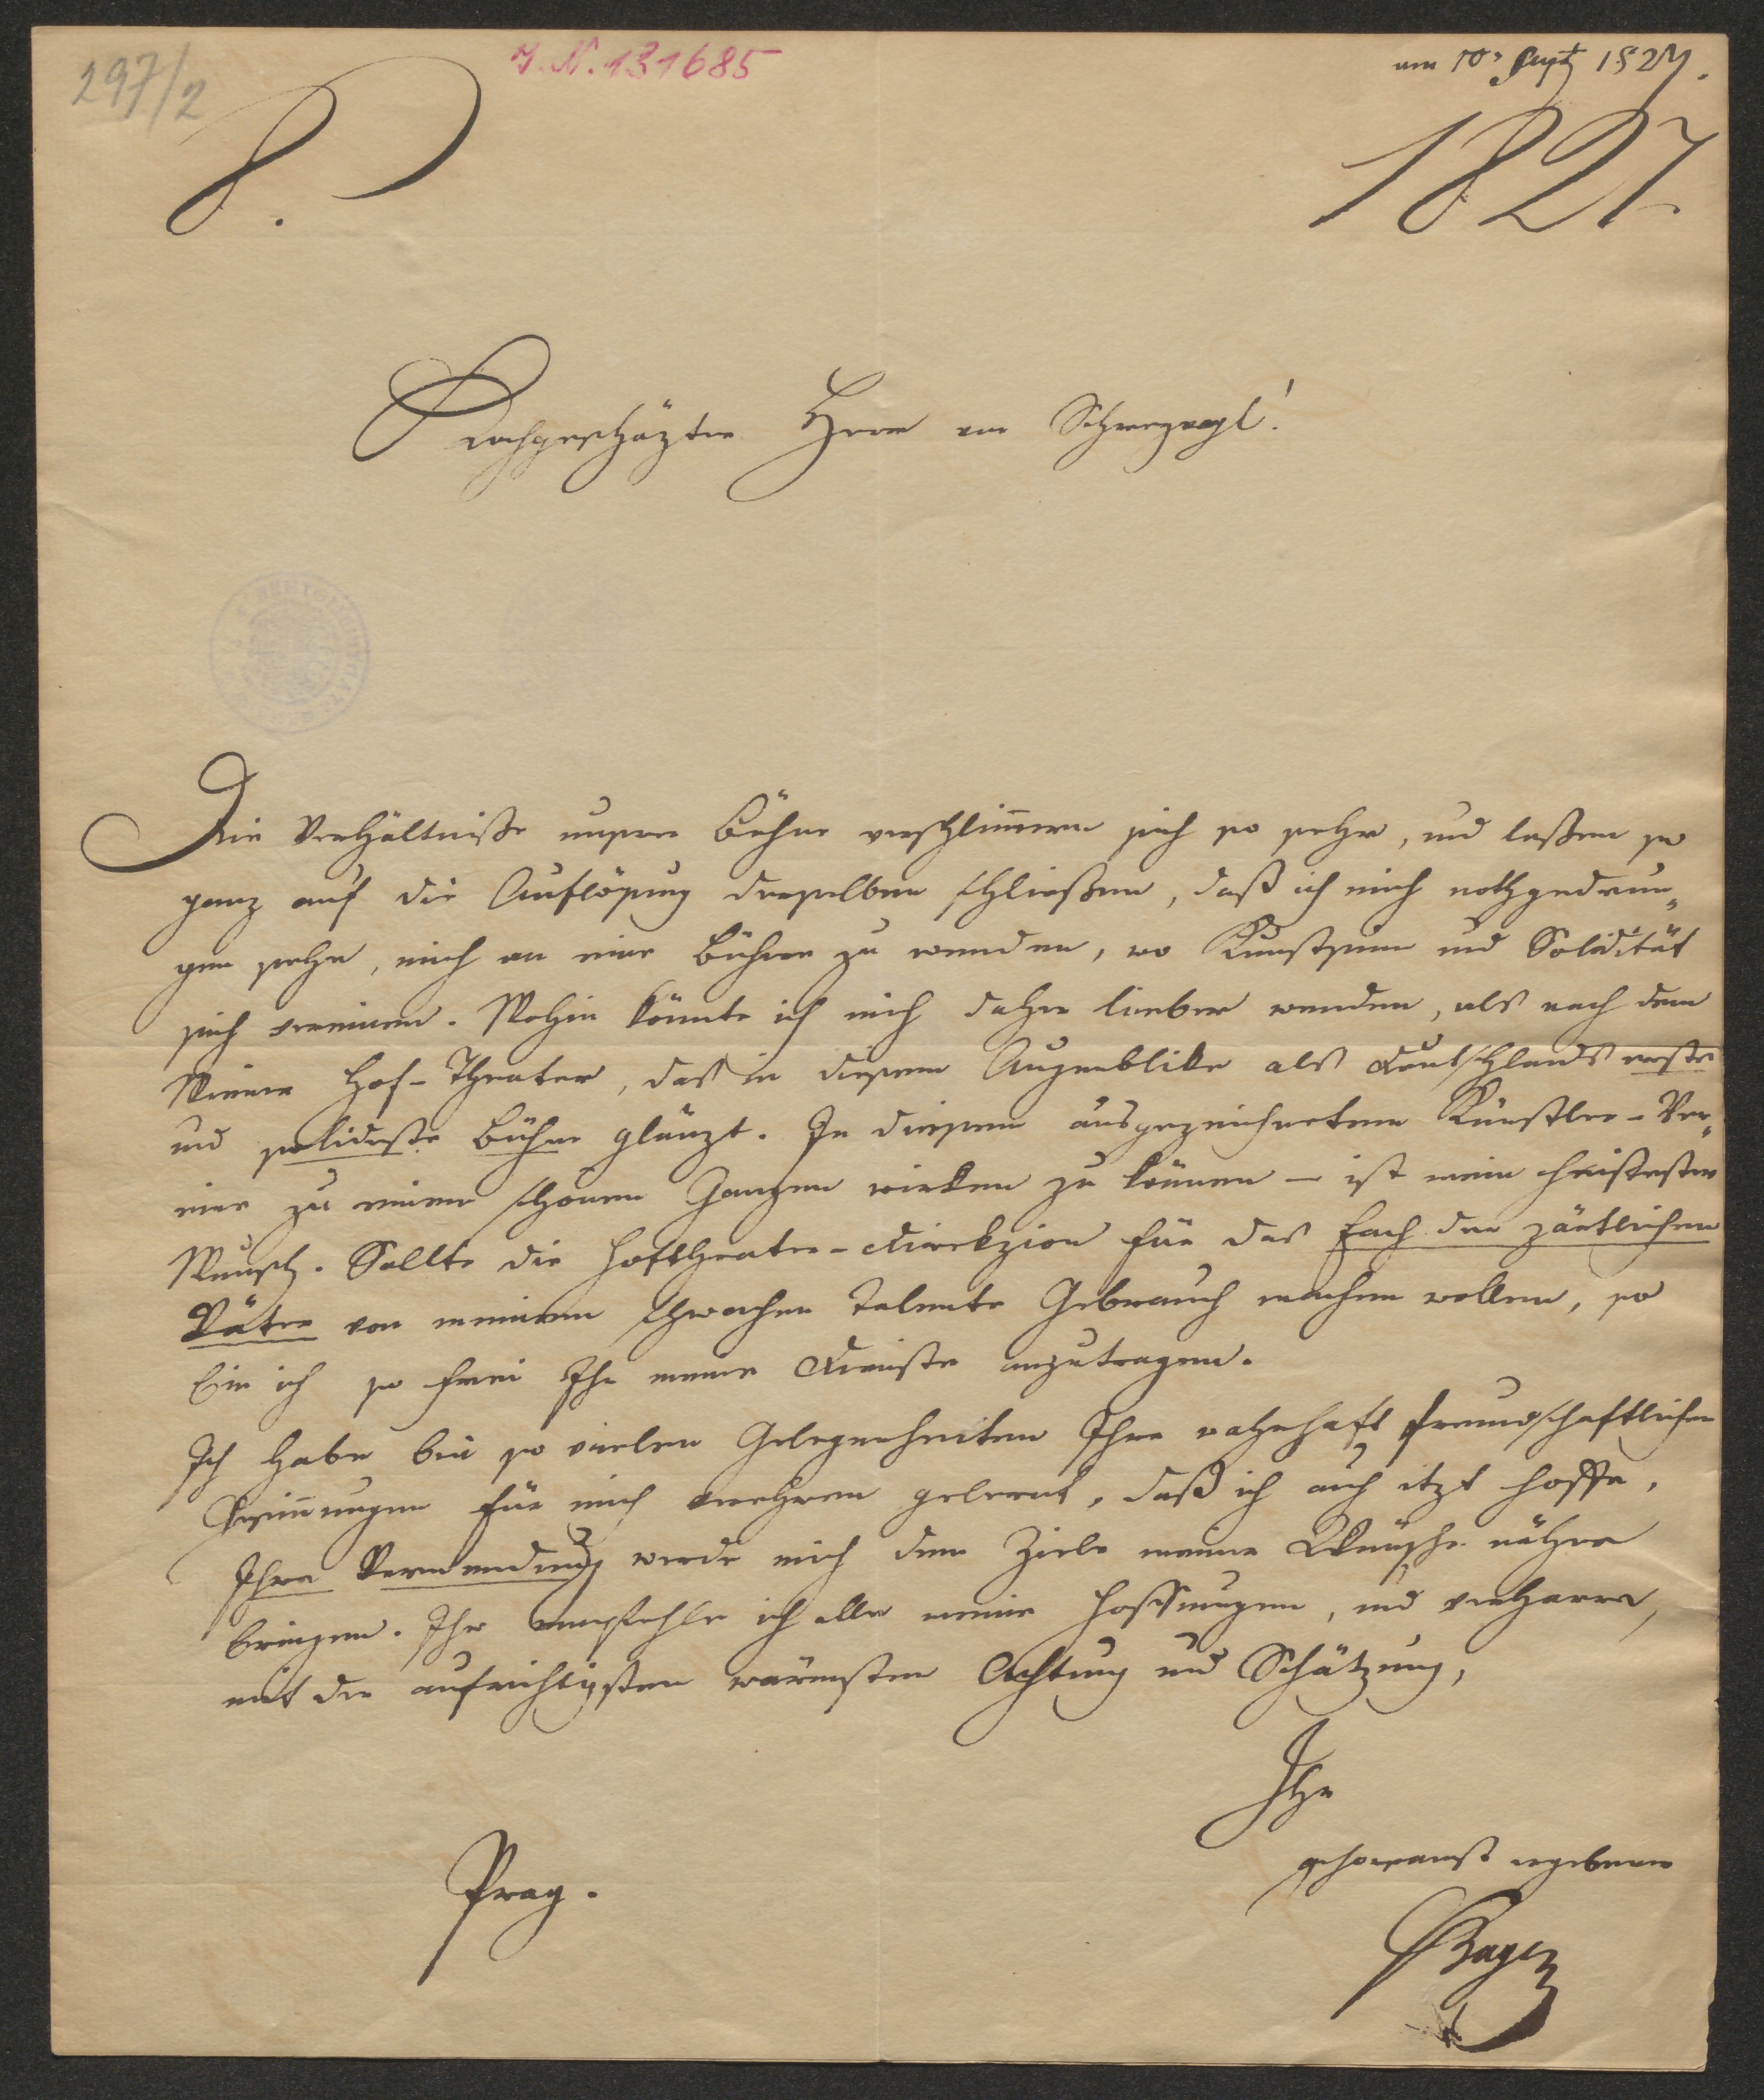 297/2
I. N. 131685
am 10. Sept 1827.
8.
1827
Hochgeschäzter Herr von Schreyvogl!
Die Verhältniße unserer Bühne verschlimern sich so sehr, und laßen so
ganz auf die Auflösung derselben schließen, daß ich mich nothgedrun-
gen sehe, mich an eine Bühne zu wenden, wo Kunstsinn und Solidität
sich vereinen. Wohin könnte ich mich daher lieber wenden, als nach dem
Wiener Hof-Theater, daß in diesem Augenblike als Deutschlands erste
und solideste Bühne glänzt. In diesem ausgezeichneten Künstler-Ver-
eine zu einem schönen Ganzen wirken zu können – ist mein heißester
Wunsch. Sollte die Hoftheater-Direkzion für das Fach der zärtlichen
Väter von meinem schwachen Talente Gebrauch machen wollen, so
bin ich so frei Ihr meine Dienste anzutragen.
Ich habe bei so vielen Gelegenheiten Ihre wahrhaft freundschaftlichen
Gesinnungen für mich verehren gelernt, daß ich auch itzt hoffe,
Ihre Verwendung werde mich dem Ziele meiner Wünsche näher
bringen. Ihr empfehle ich alle meine Hoffnungen, und verharre,
mit der aufrichtigsten wärmsten Achtung und Schätzung,
Ihr
gehorsamst ergebener
Prag.
Bayer